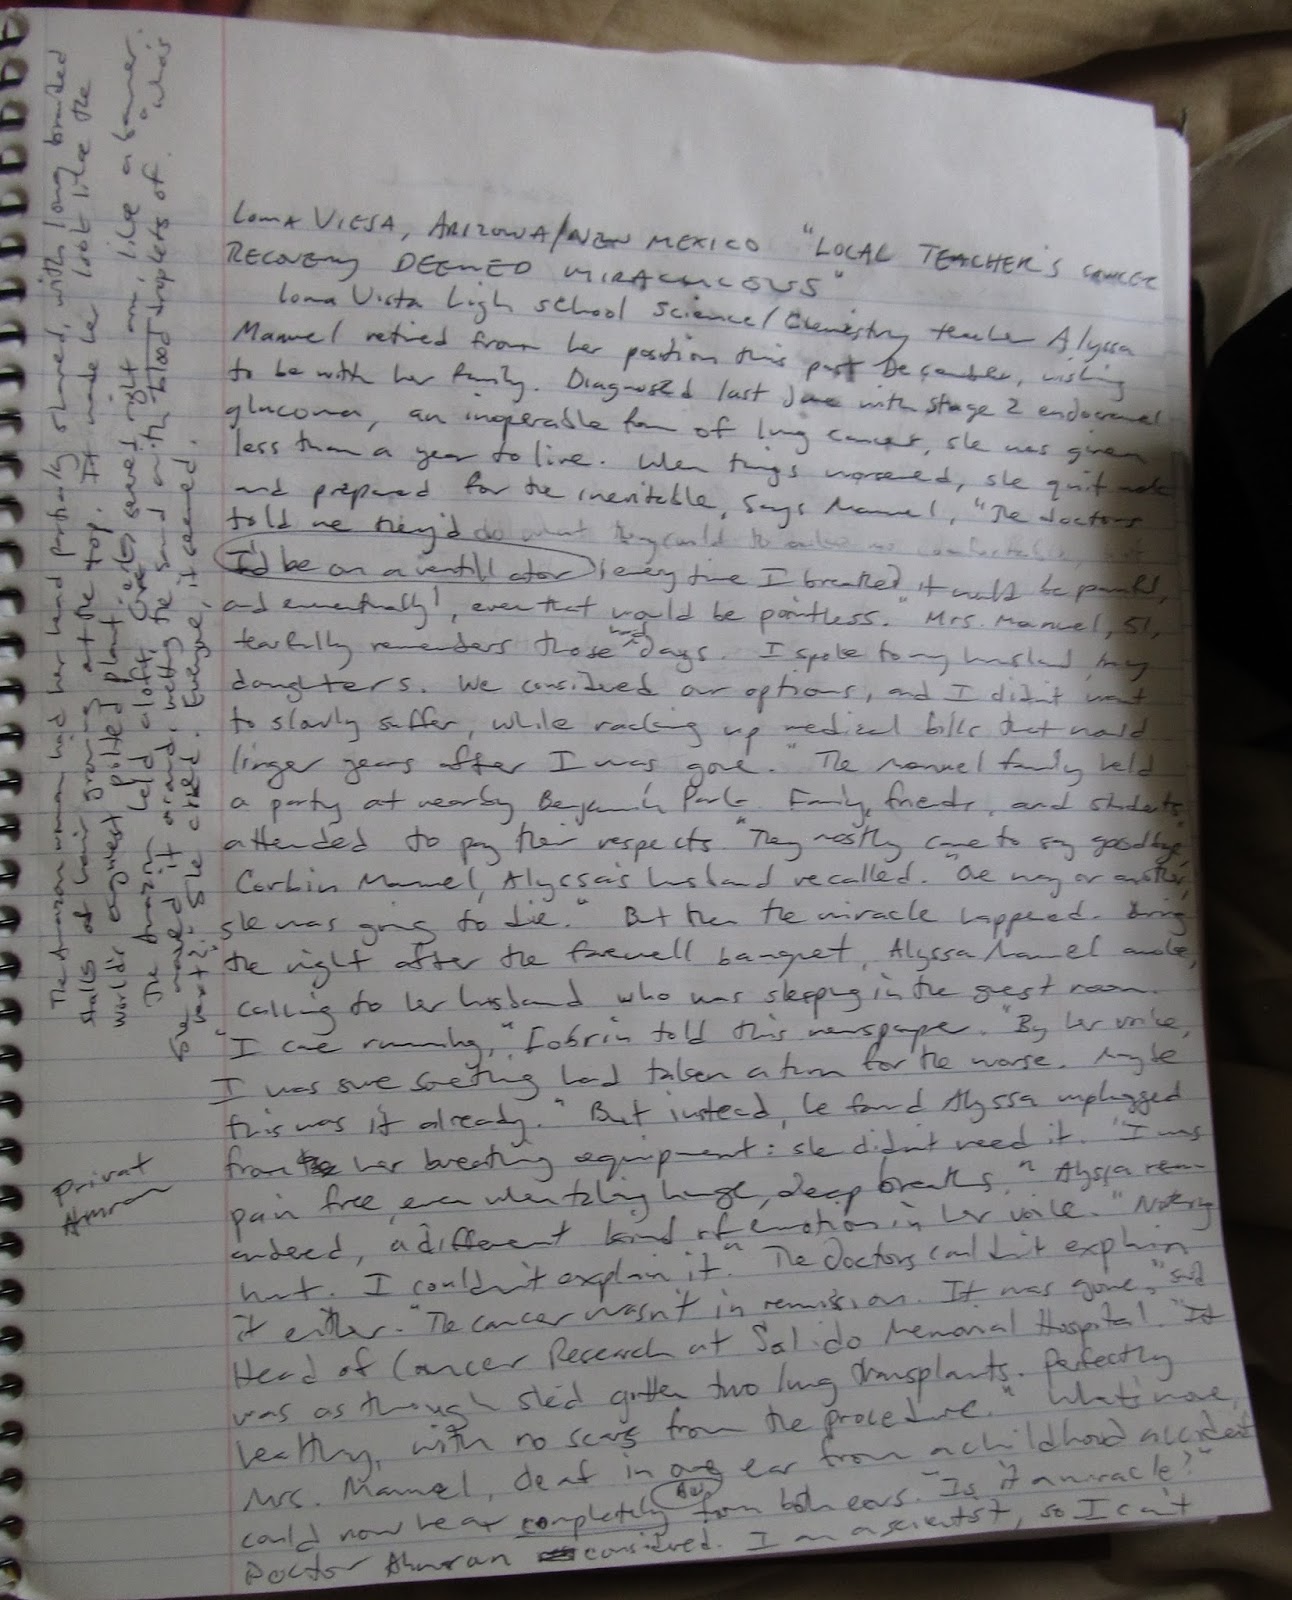 LOMA VIESA, ARIZONA/NEW MEXICO "LOCAL TEACHER'S CANCER
RECOVERY DEEMED MIRACULOUS"
Loma Vista high school Science/Chemistry teacher Alyssa
Manuel retired from her position this past December, wishing
to be with her family. Diagnosed last June with stage 2 endocrenel
glucoma, an inoperable form of lung cancer, she was given
less than a year to live. When things worsened, she quit work
and prepared for the inevitable, says Manuel, "The doctors
told me they'd do what they could to make me comfortable, but
I'd be on a ventillator, every time I breathed it would be painful,
and eventually, even that would be pointless." Mrs. Manuel, 51,
tearfully remembers those hard days. I spoke to my husband, my
daughters. We considered our options, and I didn't want
to slowly suffer, while racking up medical bills that would
linger years after I was gone." The Manuel family held
a party at nearby Benjamin Park. Family, friends, and students
attended to pay their respects. "They mostly came to say goodbye,"
Corbin Manuel, Alyssa's husband recalled. "One way or another,
she was going to die." But then the miracle happened. During
the night after the farewell banquet, Alyssa Manuel awoke,
calling to her husband who was sleeping in the guest room.
"I came running," Cobrin told this newspaper. "By her voice,
I was sure something had taken a turn for the worse. Maybe
this was it already." But instead, he found Alyssa unplugged
from her breathing equipment: she didn't need it. "I was
pain free, even when taking huge, deep breaths," Alyssa rem-
embered, a different kind of emotion in her voice. "Nothing
hurt. I couldn't explain it." The doctors couldn't explain
it either. "The cancer wasn't in remission. It was gone," said
Head of Cancer Research at Salido Memorial Hospital. "It
was as though she'd gotten two lung transplants. Perfectly
healthy, with no scars from the procedure." What's more,
Mrs. Manuel, deaf in one ear from a childhood accident
could now hear completely from both ears. "Is it a miracle?"
Doctor Ahmran considered. I am a scientist, so I can't
The Amazon woman had her head partially shaved, with long braided
stalks of hair growing at the top. It made her look like the
world's angriest potted plant.
The Amazon held aloft One's saved right arm, like a banner.
She waved it around, wetting the sand with blood droplets of. "Who's
next?" She cried. Everyone, it seemed.
Privat
Ahmran